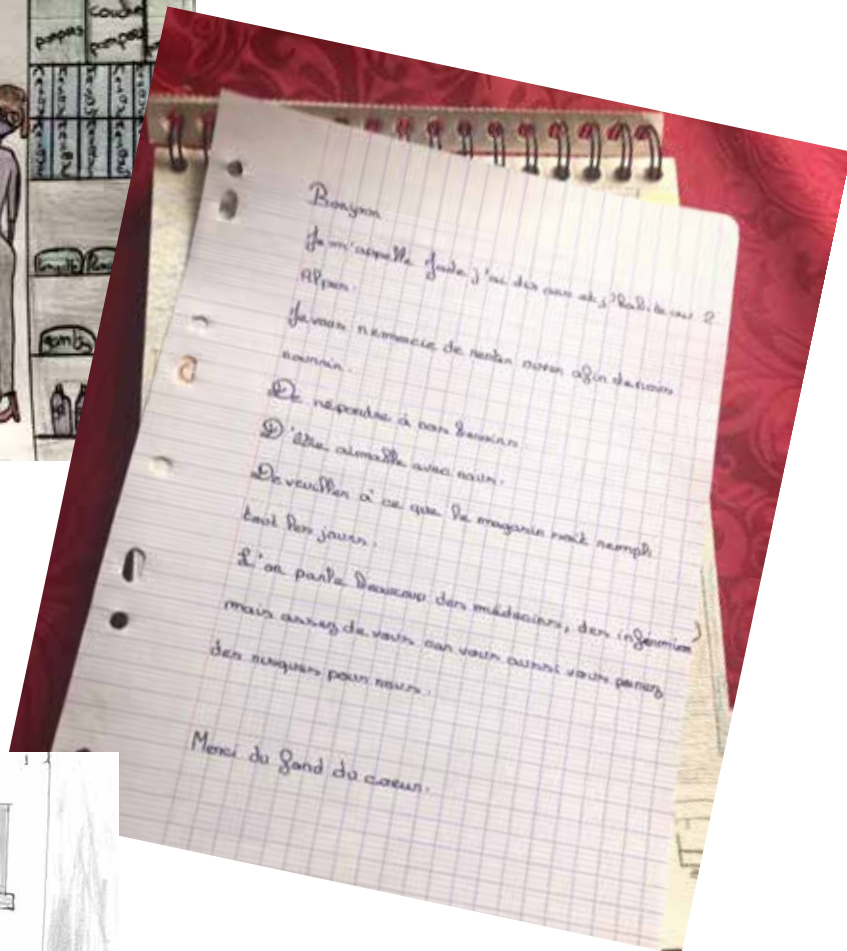 couches
pampers
pampers
gants
Bonjour
Je m'appelle Jade j'ai dix ans et j'habite au 2
Alpes.
Je vous remercie de rester ouver afin de nous
nourrir.
De répondre à nos besoins.
D'être aimable avec nous.
De veuiller à ce que le magasin soit rempli
tout les jours.
L'on parle beaucoup des médecins, des infirmier
mais assez de vous car vous aussi vous prenez
des risques pour nous.
Merci du fond du coeur.